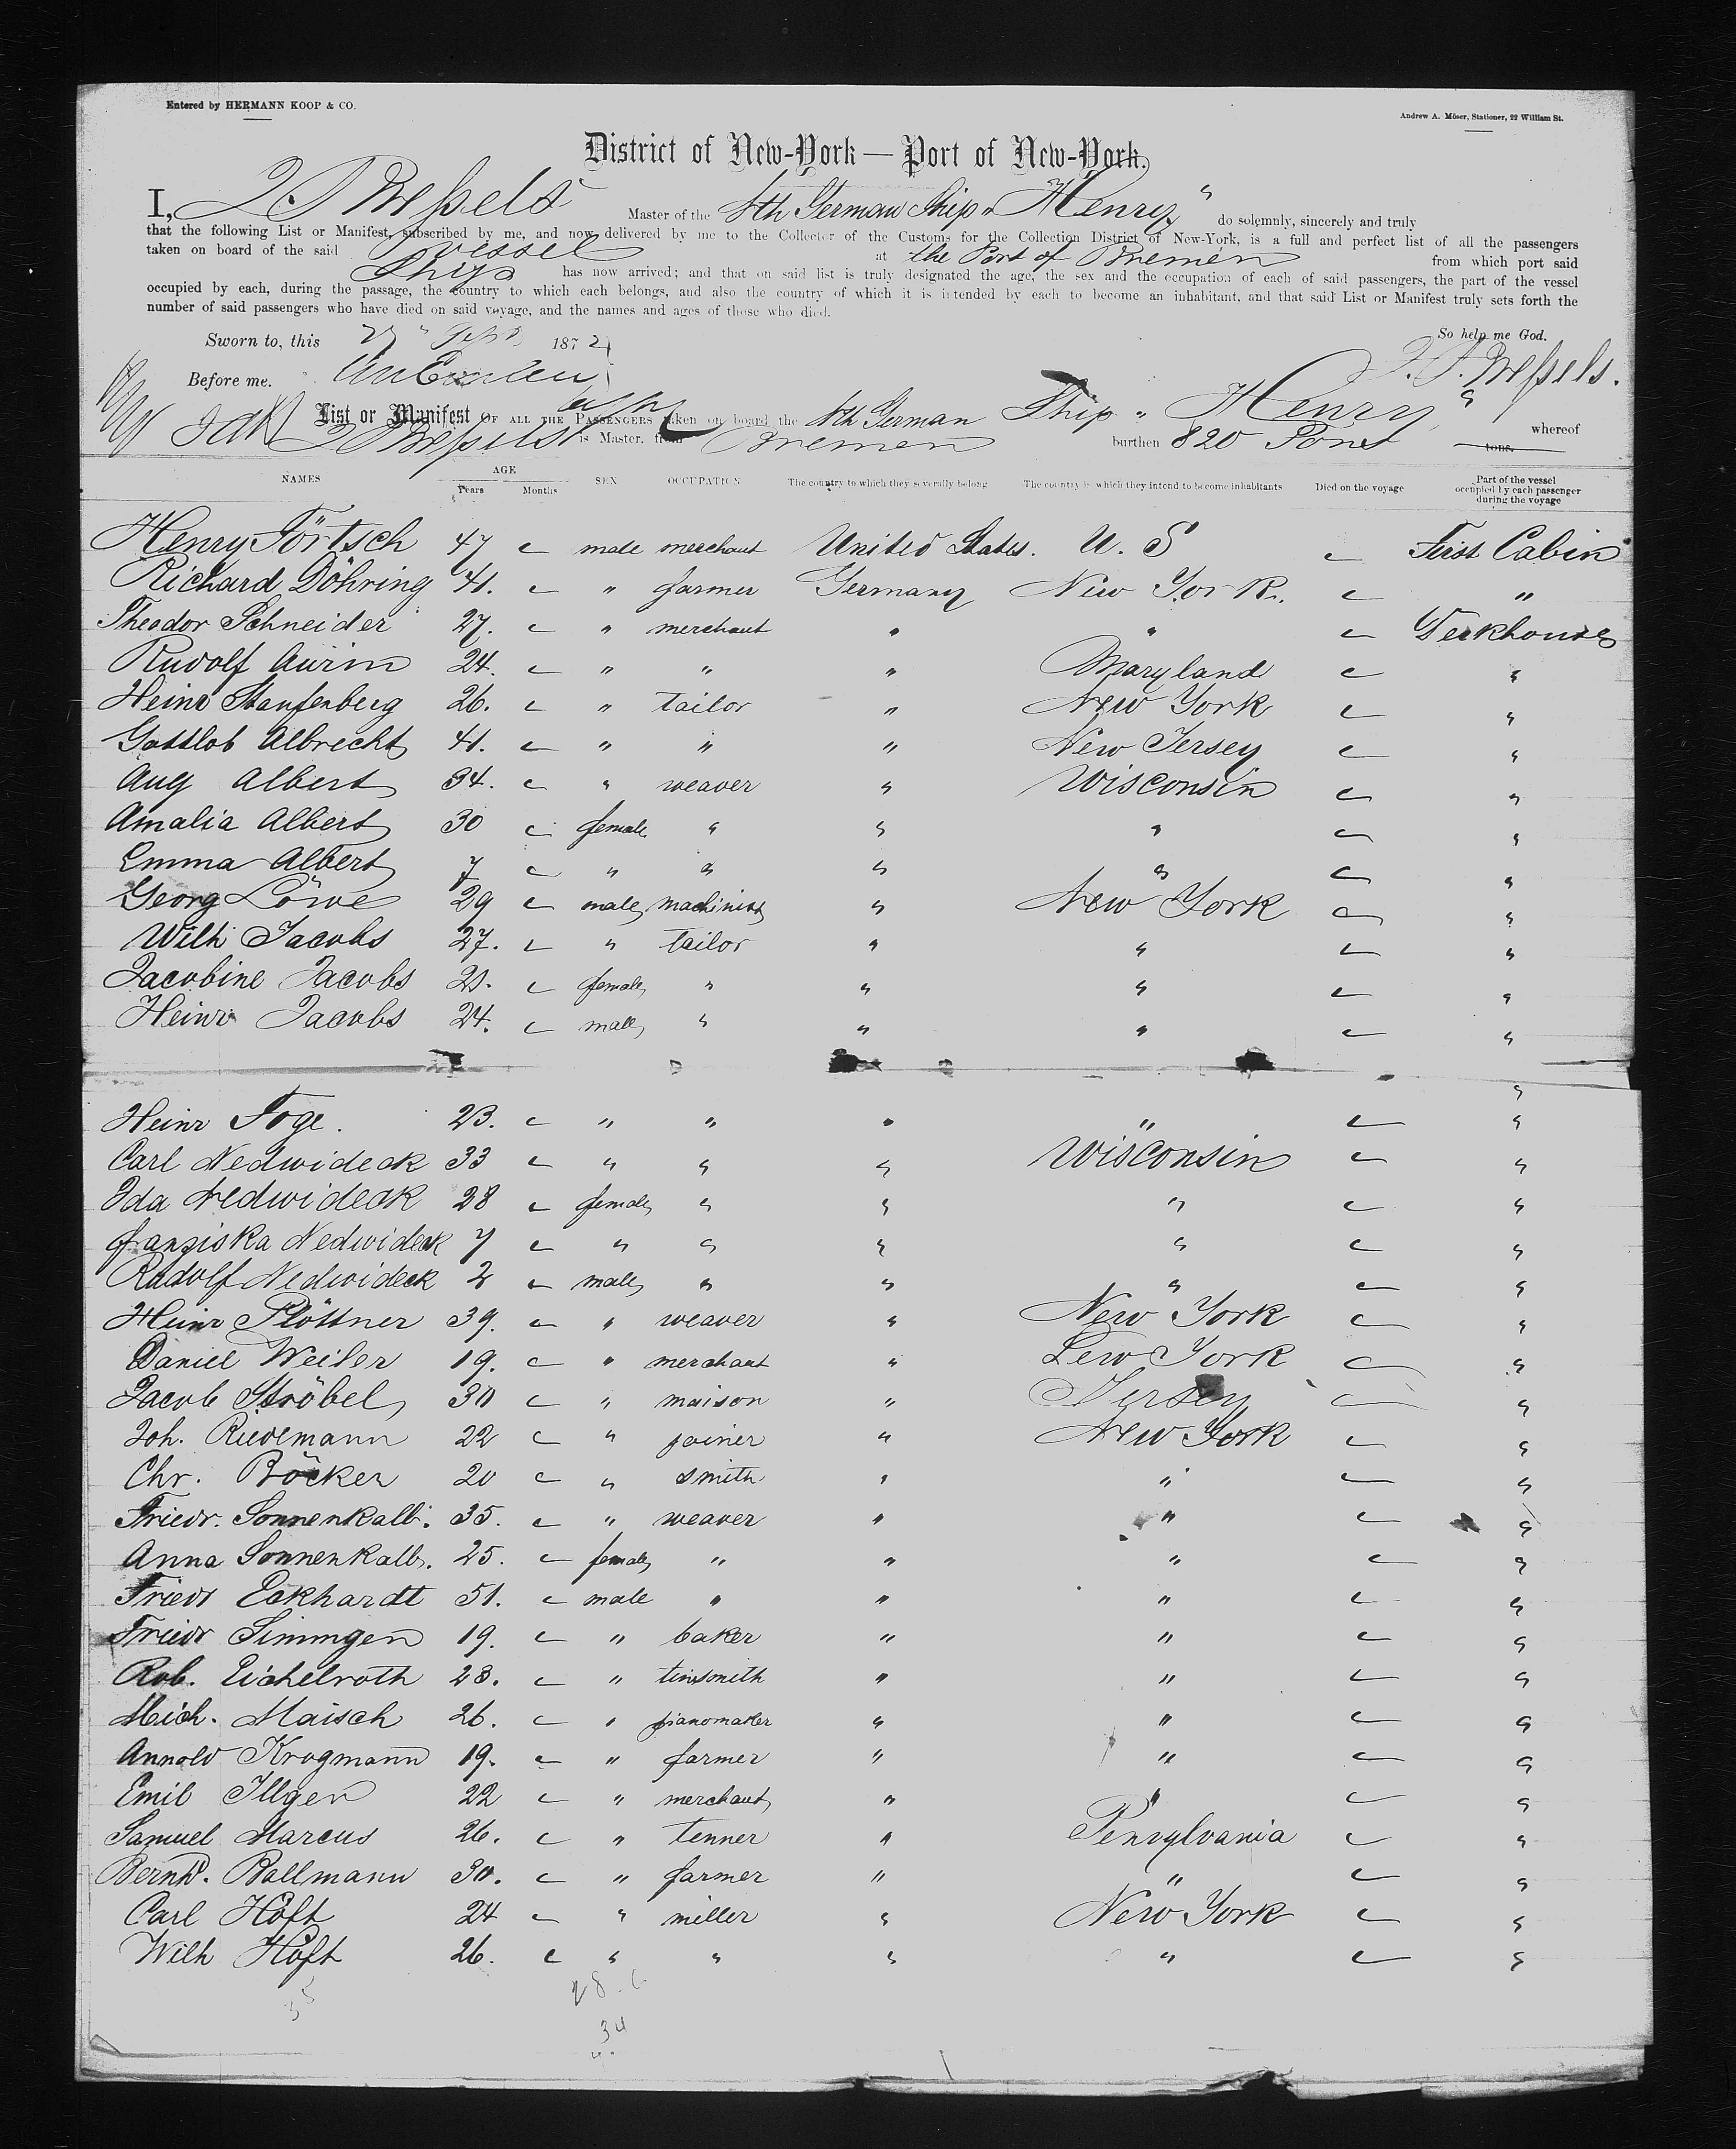 Entered by HERMANN KOOP & CO.
Andrew A. Möser, Stationer, 22 William St.
District of New-York — Port of New-York.
I, Master of the Nth German Ship "Henry" do solemnly, sincerely and truly
that the following List or Manifest, subscribed by me, and now delivered by me to the Collector of the Customs for the Collection District of New-York, is a full and perfect list of all the passengers
taken on board of the said vessel at the Port of Bremen from which port said
Ship has now arrived; and that on said list is truly designated the age, the sex and the occupation of each of said passengers, the part of the vessel
occupied by each, during the passage, the country to which each belongs, and also the country of which it is intended by each to become an inhabitant, and that said List or Manifest truly sets forth the
number of said passengers who have died on said voyage, and the names and ages of those who died.
So help me God.
Sworn to, this 1872
Before me.
List or Manifest OF ALL THE PASSENGERS taken on board the Nth German Ship "Henry" whereof
is Master, from Bremen burthen 820 Tons tons.
NAMES AGE Years Months SEX OCCUPATION The country to which they severally belong The country in which they intend to become inhabitants Died on the voyage Part of the vessel occupied by each passenger during the voyage
Henry Förtsch 47 male merchant United States. U. S First Cabin
Richard Döhring 41. " farmer Germany New York. "
Theodor Schneider 27. " merchant " " Deckhouse
Rudolf Aurin 24. " " " Maryland "
Heinr Staufenberg 26. " tailor " New York "
Gottlob Albrecht 41. " " " New Jersey "
Aug Albert 34. " weaver " Wisconsin "
Amalia Albert 30 female " " " "
Emma Albert 7 " " " " "
Georg Löwe 29 male machinist " New York "
Wilh Jacobs 27. " tailor " " "
Jacobine Jacobs 21. female " " " "
Heinr Jacobs 24. male " " " "
"
Heinr Foge. 23. " " " " "
Carl Nedwideck 33 " " " Wisconsin "
Ida Nedwideck 28 female " " " "
Franziska Nedwideck 7 " " " " "
Rudolf Nedwideck 2 male " " " "
Heinr Plöttner 39. " weaver " New York "
Daniel Weiler 19. " merchant " Lew York "
Jacob Ströbel 30 " maison " Jersey "
Joh. Riedemann 22 " joiner " New York "
Chr. Böcker 20 " smith " " "
Friedr. Sonnenkalb. 35. " weaver " " "
Anna Sonnenkalb. 25. female " " " "
Friedr Eckhardt 51. male " " " "
Friedr Simmgen 19. " baker " " "
Rob. Eichelroth 28. " tinsmith " " "
Mich. Maisch 26. " pianomaker " " "
Arnold Krogmann 19. " farmer " " "
Emil Illgen 22 " merchant " " "
Samuel Marcus 26. " tenner " Pensylvania "
Bernh. Ballmann 30. " farmer " " "
Carl Höft 24 " miller " New York "
Wilh Höft 26. " " " " "
35
34